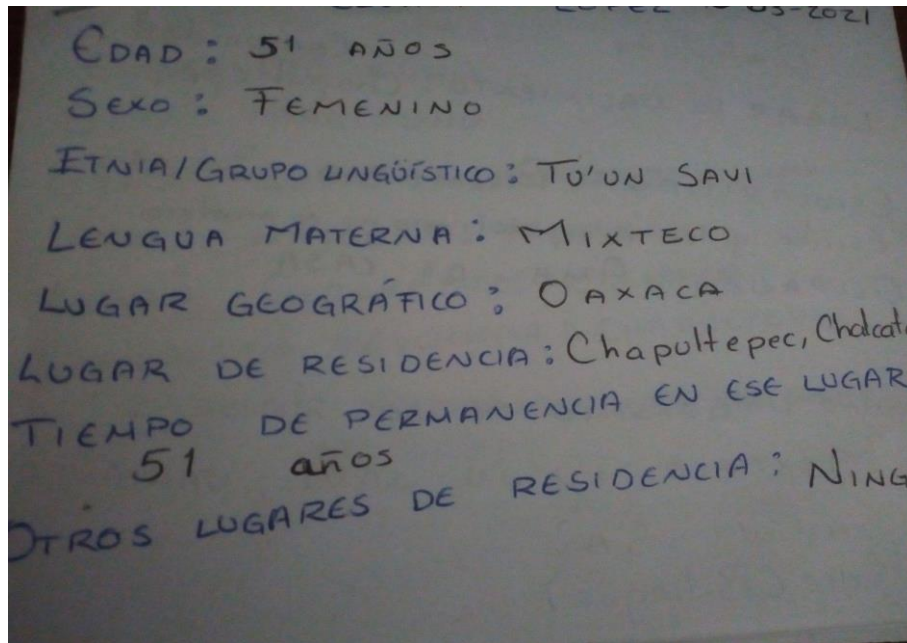 LOPEZ
EDAD: 51 AÑOS
SEXO: FEMENINO
ETNIA/GRUPO LINGÜÍSTICO: TU'UN SAVI
LENGUA MATERNA: MIXTECO
LUGAR GEOGRÁFICO: OAXACA
LUGAR DE RESIDENCIA: Chapultepec,
TIEMPO DE PERMANENCIA EN ESE LUGAR
51 años
OTROS LUGARES DE RESIDENCIA: NING